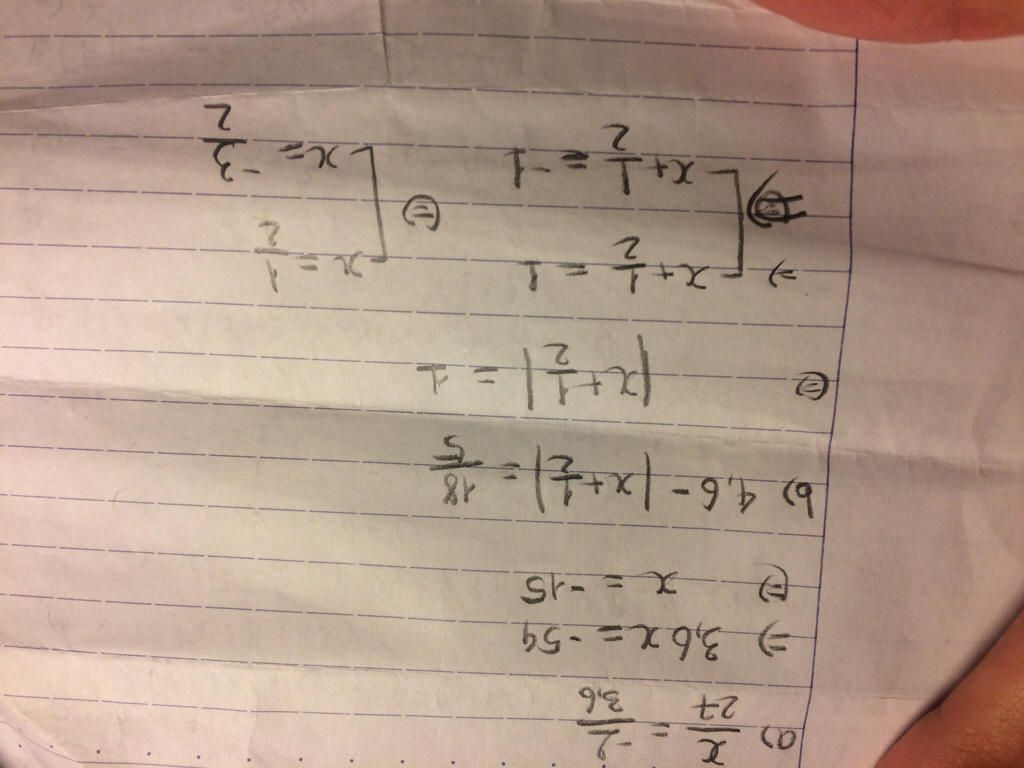 a) x/27 = -2/3,6
=> 3,6x = -54
<=> x = -15
b) 4,6 - |x + 1/2| = 18/5
<=> |x + 1/2| = 1
=> [ x + 1/2 = 1 [ x = 1/2
x + 1/2 = -1 <=> x = -3/2